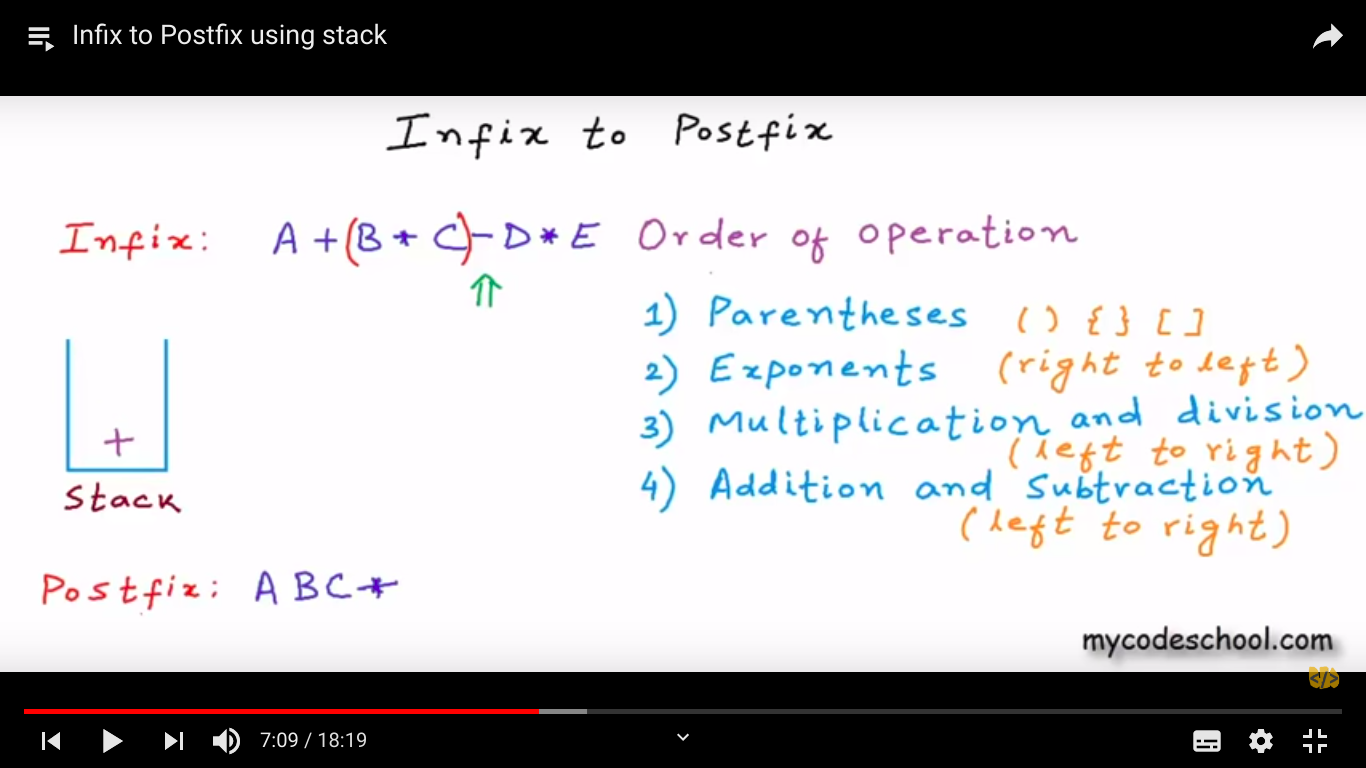 Infix to Postfix using stack
Infix to Postfix
Infix: A + (B * C) - D * E
Order of operation
1) Parentheses ( ) { } [ ]
2) Exponents (right to left)
3) Multiplication and division
(left to right)
4) Addition and Subtraction
(left to right)
+
Stack
Postfix: A B C *
mycodeschool.com
</>
7:09 / 18:19